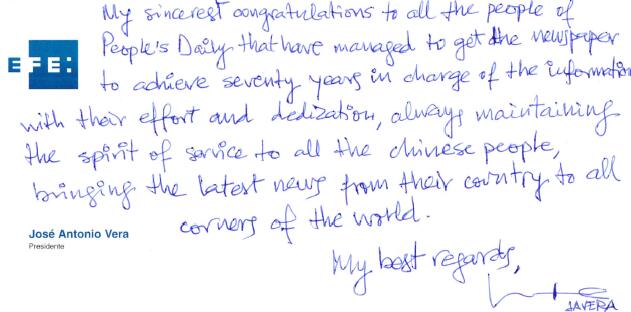 My sincerest congratulations to all the people of
People's Daily that have managed to get the newspaper
EFE:
to achieve seventy years in charge of the information
with their effort and dedization, always maintaining
the spirit of service to all the chinese people,
bringing the latest news from their country to all
corners of the world.
José Antonio Vera
Presidente
My best regards,
JAVERA